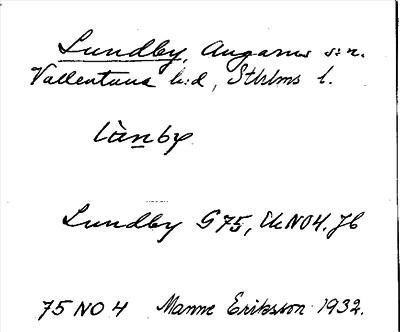 Lundby, Angarns s:n.
Vallentuna h:d, Sthlms l.
lànby
Lundby G75, Ek NO4. Jb
75 NO 4 Manne Eriksson 1932.